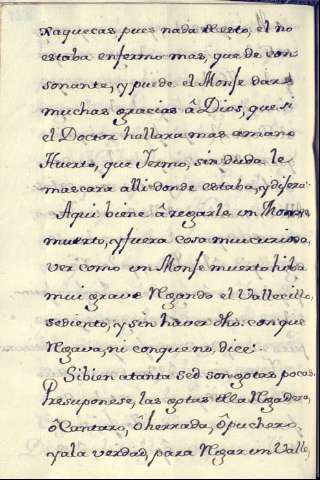 Xaquecas pues nada de esto, el no
estaba enfermo mas, que de con-
sonante, y puede el Monse dar
muchas gracias â Dios, que si
el Doctor hallara mas amano
Huerto, que Yermo, sin duda le
mascara alli donde estaba, y difera:
Aqui biene â regarle un Monse
muerto, y fuera cosa mui curiosa,
ver como un Monse muerto hiba
mui grave Rgando el Vallecillo,
sediento, y sin haver dho. con que
Rgava, ni con que no, dice:
Si bien atanta sed son gotas pocas.
Presuponese, las gotas dlla Rgadera,
ô Cantaro, ô herrada, ô puchero,
y ala verdad, para Rgar un Valle,